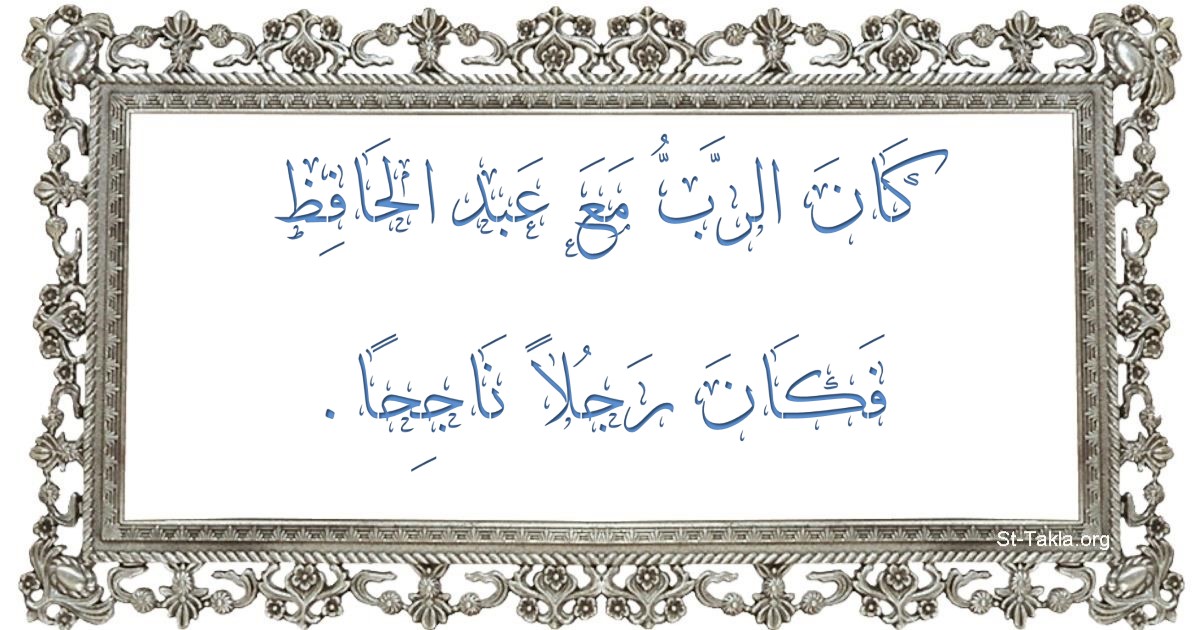 كَانَ الرَّبُّ مَعَ عَبْد الْحَافِظْ
فَكَانَ رَجُلاً نَاجِحًا .
St-Takla.org